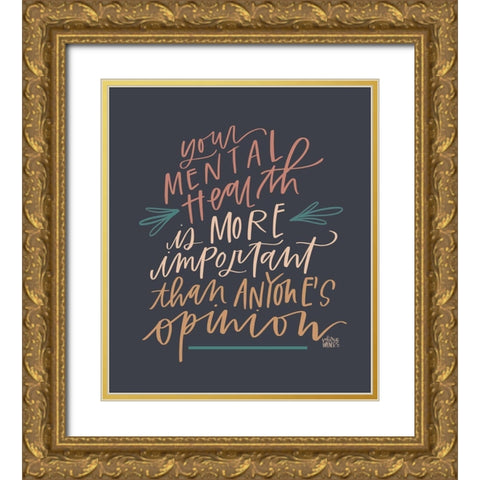 your
MENTAL
Health
is MORE
important
than ANYONE'S
opinion